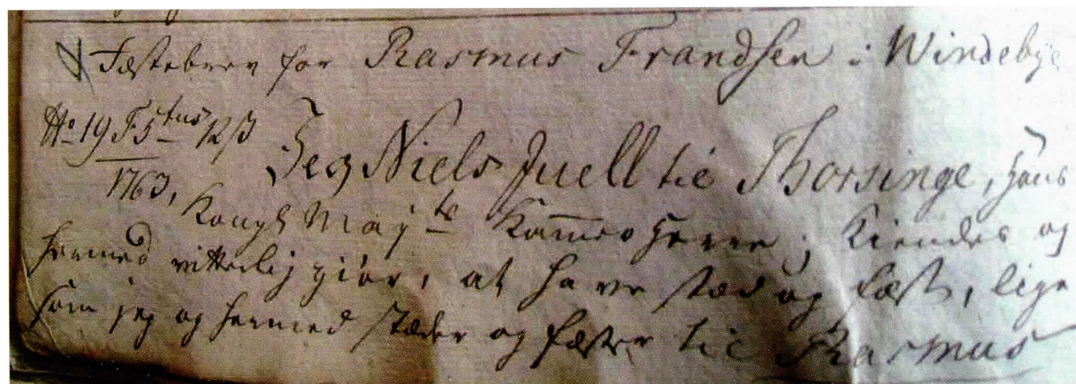 Fæstebrev for Rasmus Frandsen i Windebye
No 19 F5tus 12 β Jeg Niels Juell til Thorsinge, Hans
1763, Kongl Mayts Kammerherre; Kiendes og
hermed vitterlig giør, at have stæd og fæst, lige
som jeg og hermed stæder og fæster til Rasmus